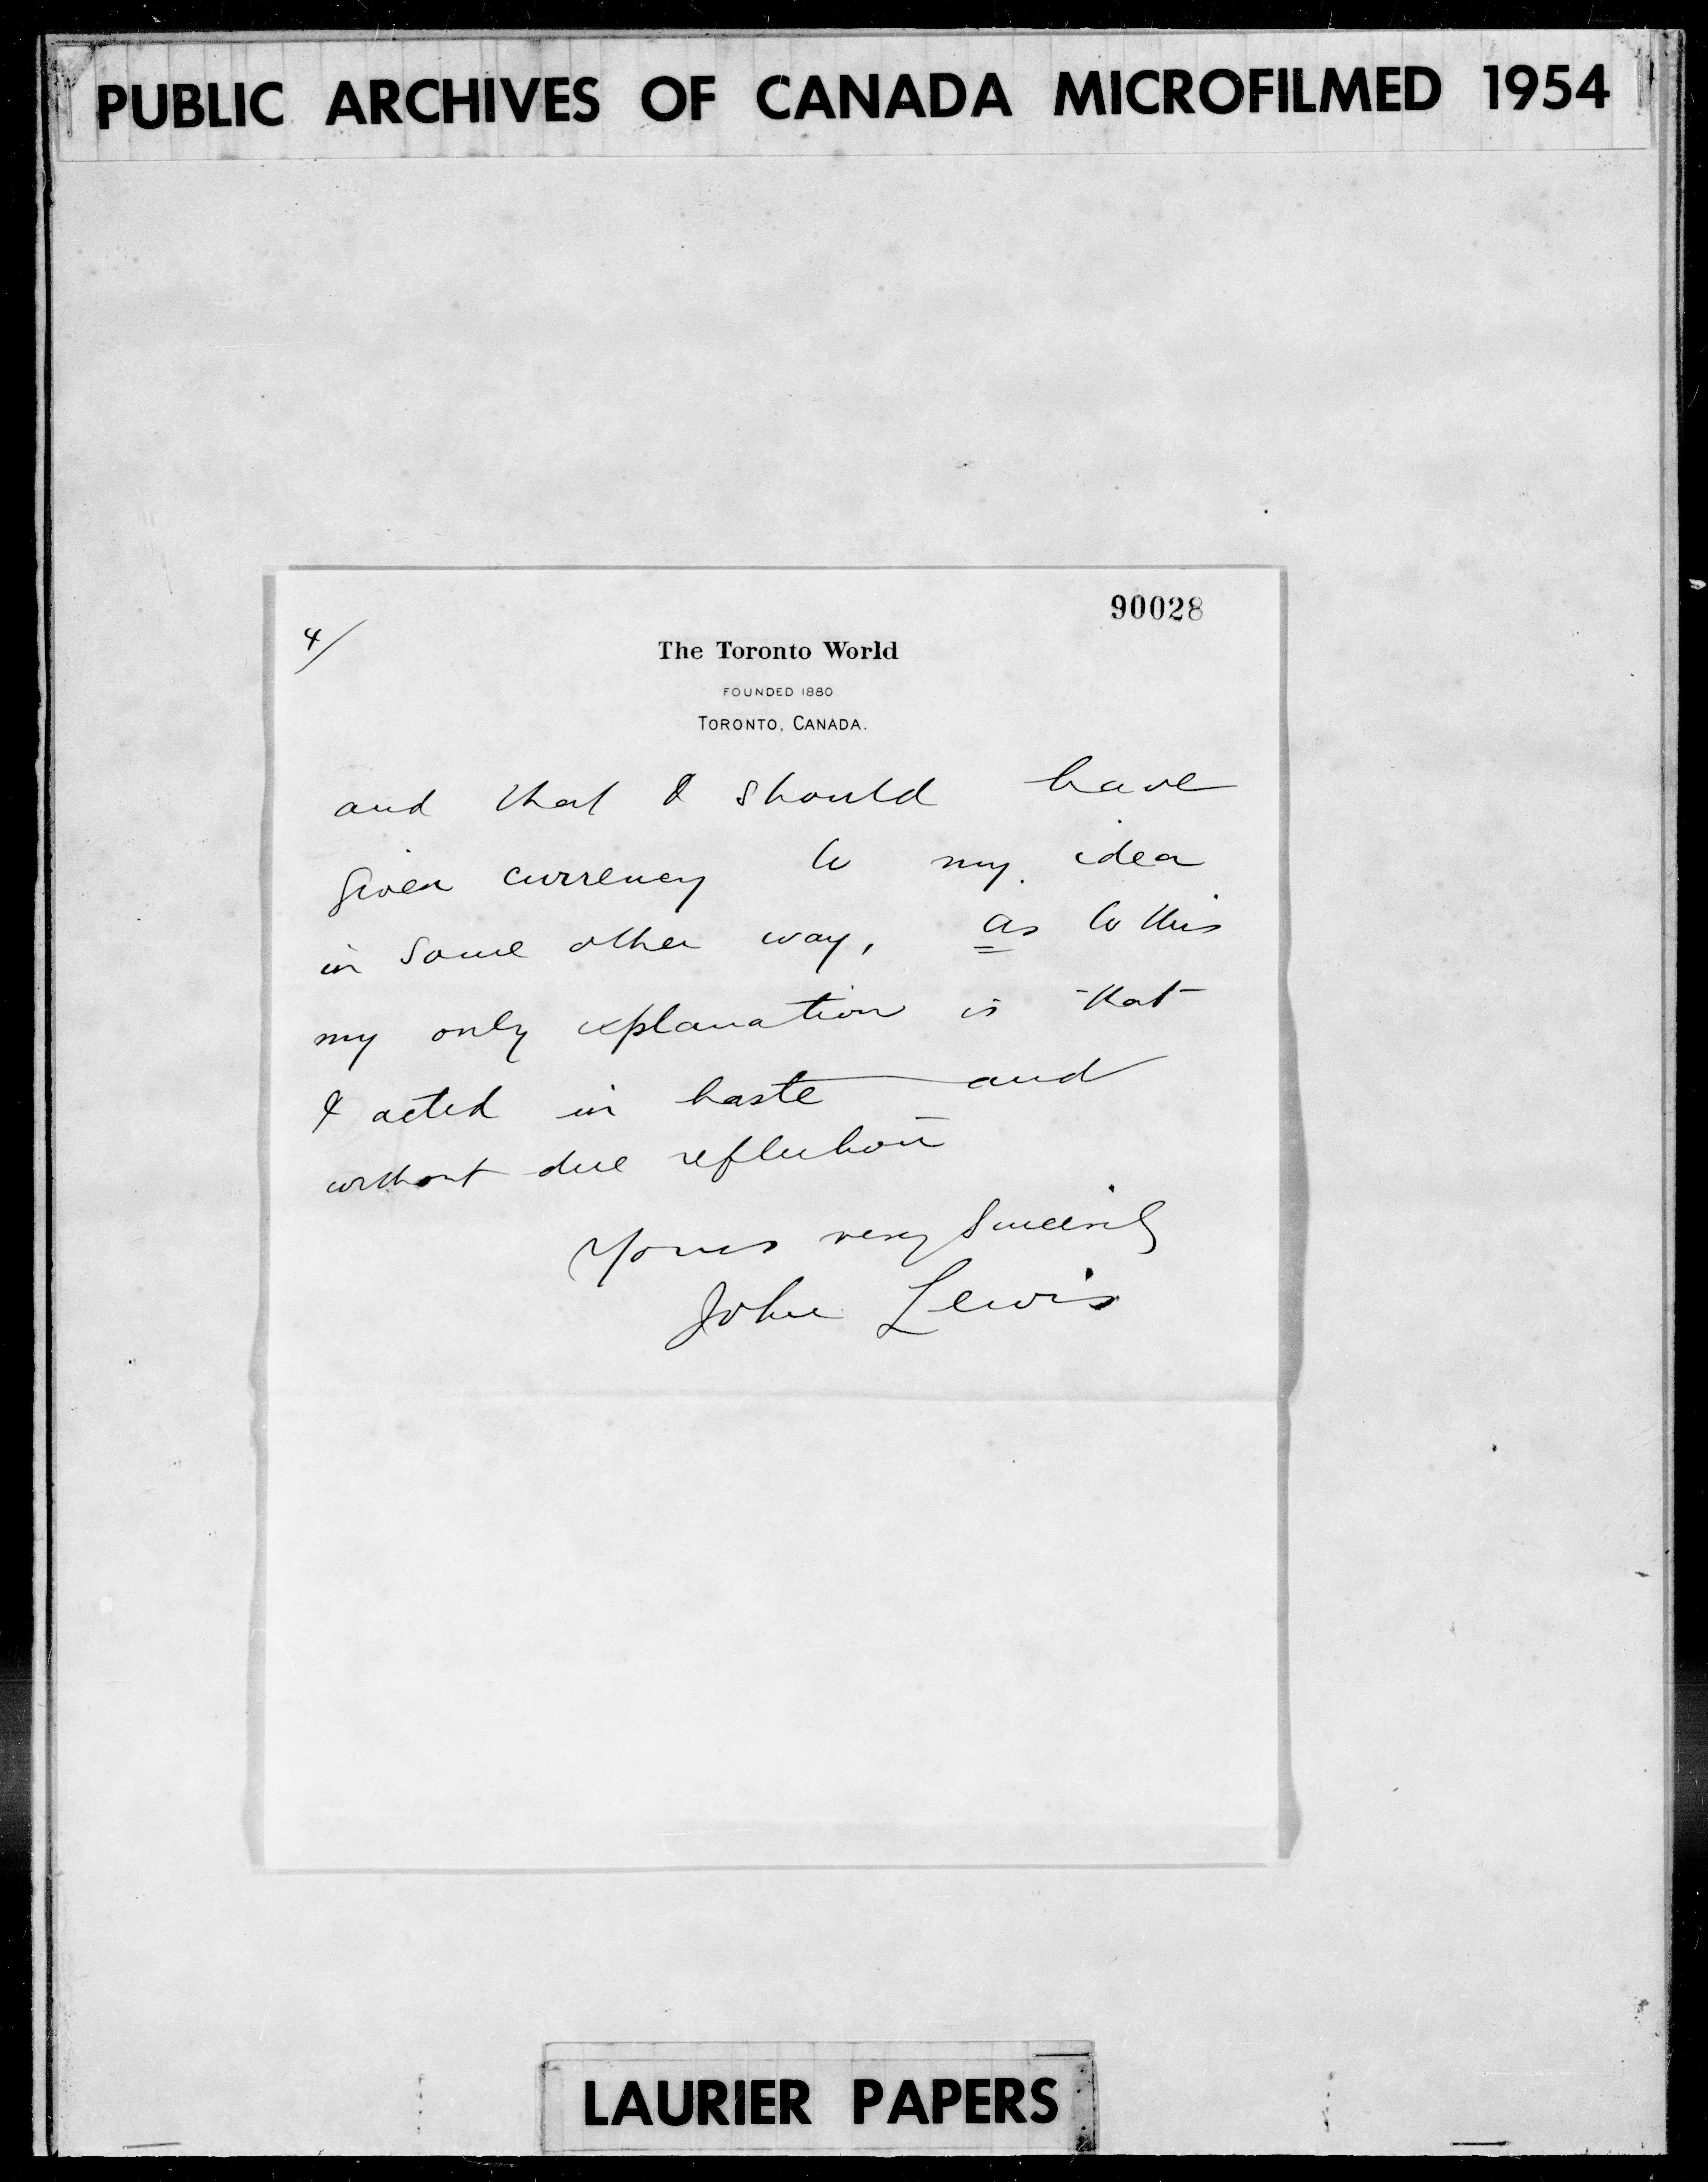 PUBLIC ARCHIVES OF CANADA MICROFILMED 1954
90028
4/
The Toronto World
FOUNDED 1880
TORONTO, CANADA.
and that I should have
given currency to my idea
in some other way, as to this
my only explanation is that
I acted in haste and
without due reflection
Yours very sincerely
John Lewis
LAURIER PAPERS